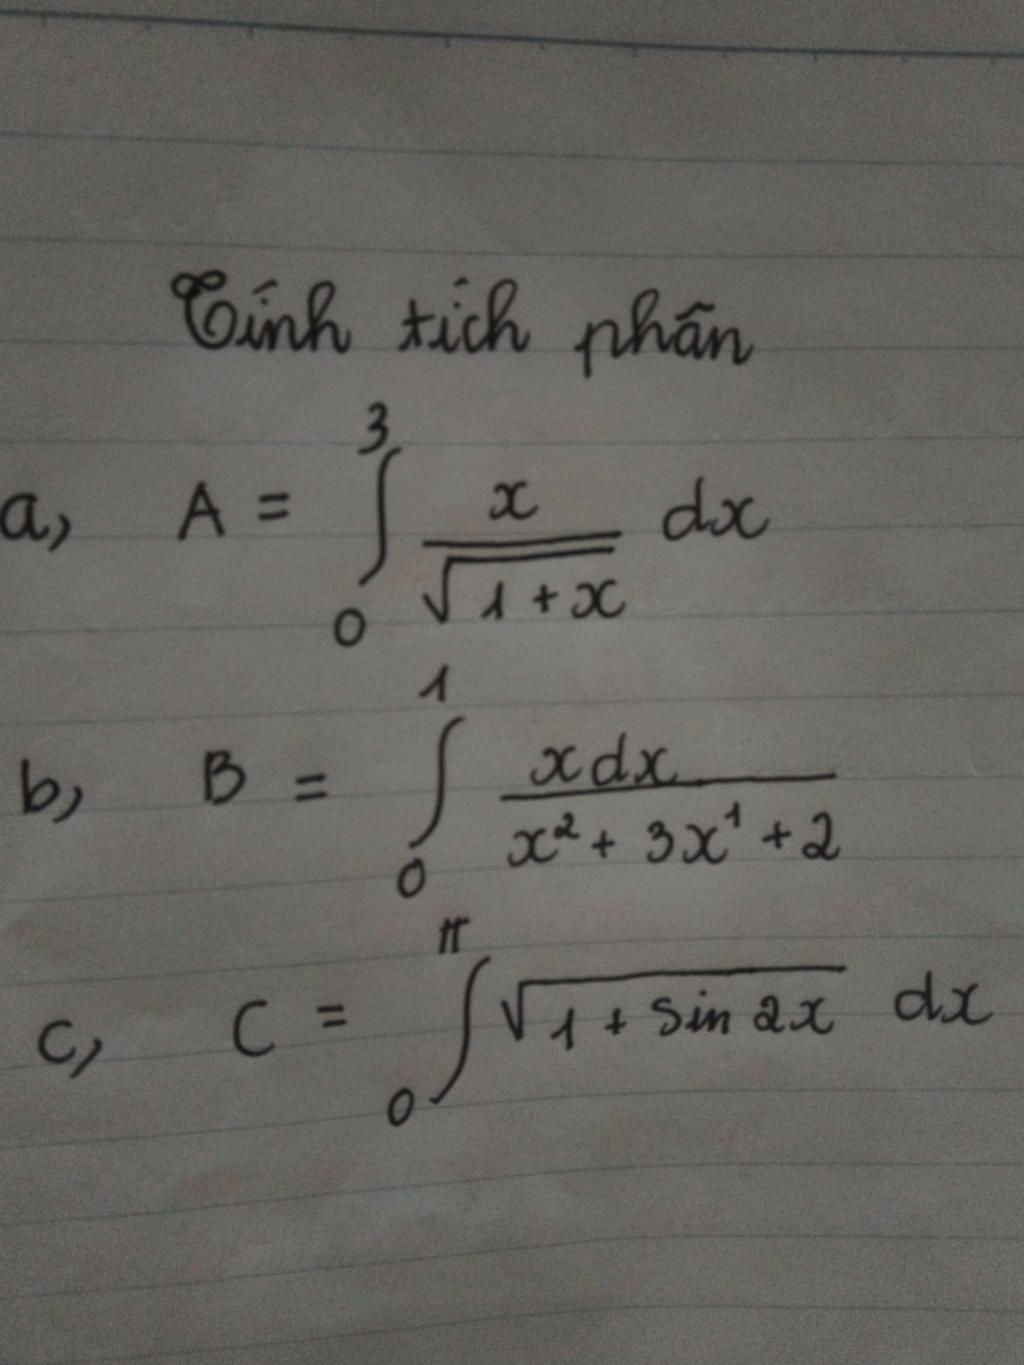 Tính tích phân
a, A = ∫₀³ x/√(1+x) dx
b, B = ∫₀¹ xdx/(x² + 3x¹ + 2)
c, C = ∫₀^π √(1 + sin 2x) dx